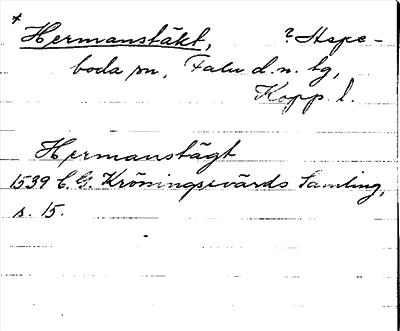 * Hermanstäkt, ? Aspe-
boda sn, Falu d.n. tg,
Kopp. l.
Hermanstägt
1539 C.G. Kröningsvärds Samling,
s. 15.